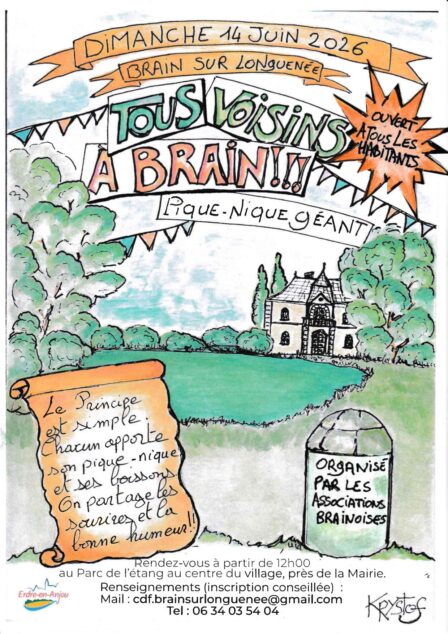 DIMANCHE 14 JUIN 2026
BRAIN SUR LONGUENÉE
TOUS VOISINS
À BRAIN!!!
OUVERT
À TOUS LES
HABITANTS
PIQUE-NIQUE GÉANT
Le Principe
est simple
Chacun apporte
son pique-nique
et ses boissons
On partage les
sourires et la
bonne humeur!!
ORGANISÉ
PAR LES
ASSOCIATIONS
BRAINOISES
Rendez-vous à partir de 12h00
au Parc de l'étang au centre du village, près de la Mairie.
Renseignements (inscription conseillée) :
Mail : cdf.brainsurlonguenee@gmail.com
Tel : 06 34 03 54 04
Erdre-en-Anjou
KRYSTOF